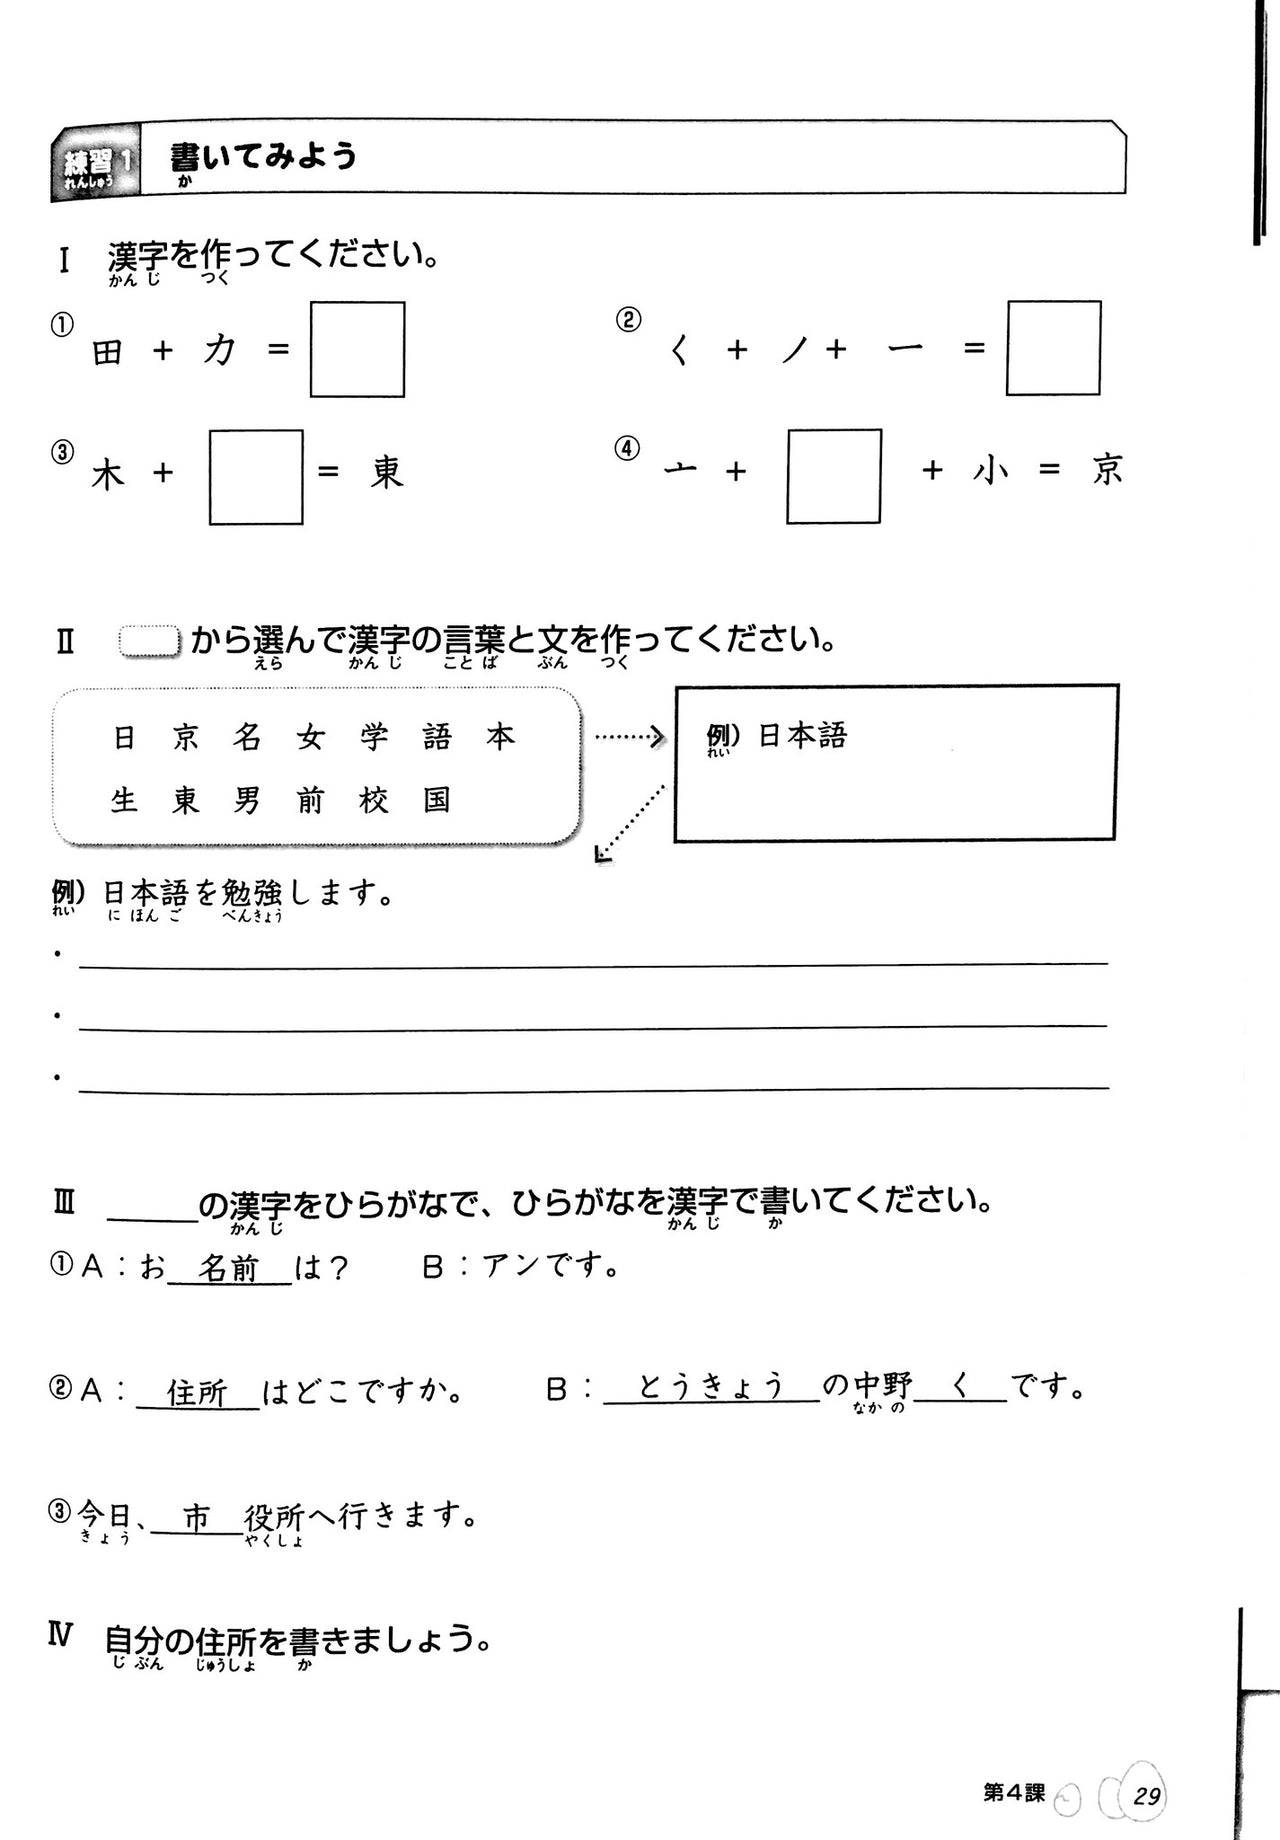 練習1 書いてみよう
れんしゅう か
Ⅰ 漢字を作ってください。
かんじ つく
① 田 + 力 =
② く + ノ + 一 =
③ 木 + = 東
④ 亠 + + 小 = 京
Ⅱ から選んで漢字の言葉と文を作ってください。
えら かんじ ことば ぶん つく
日 京 名 女 学 語 本
生 東 男 前 校 国
例）日本語
れい
例）日本語を勉強します。
れい にほんご べんきょう
・
・
・
Ⅲ ＿＿＿の漢字をひらがなで、ひらがなを漢字で書いてください。
かんじ かんじ か
①A：お 名前 は？ B：アンです。
②A： 住所 はどこですか。 B： とうきょう の中野 く です。
なかの
③今日、 市 役所へ行きます。
きょう やくしょ
Ⅳ 自分の住所を書きましょう。
じぶん じゅうしょ か
第4課 29